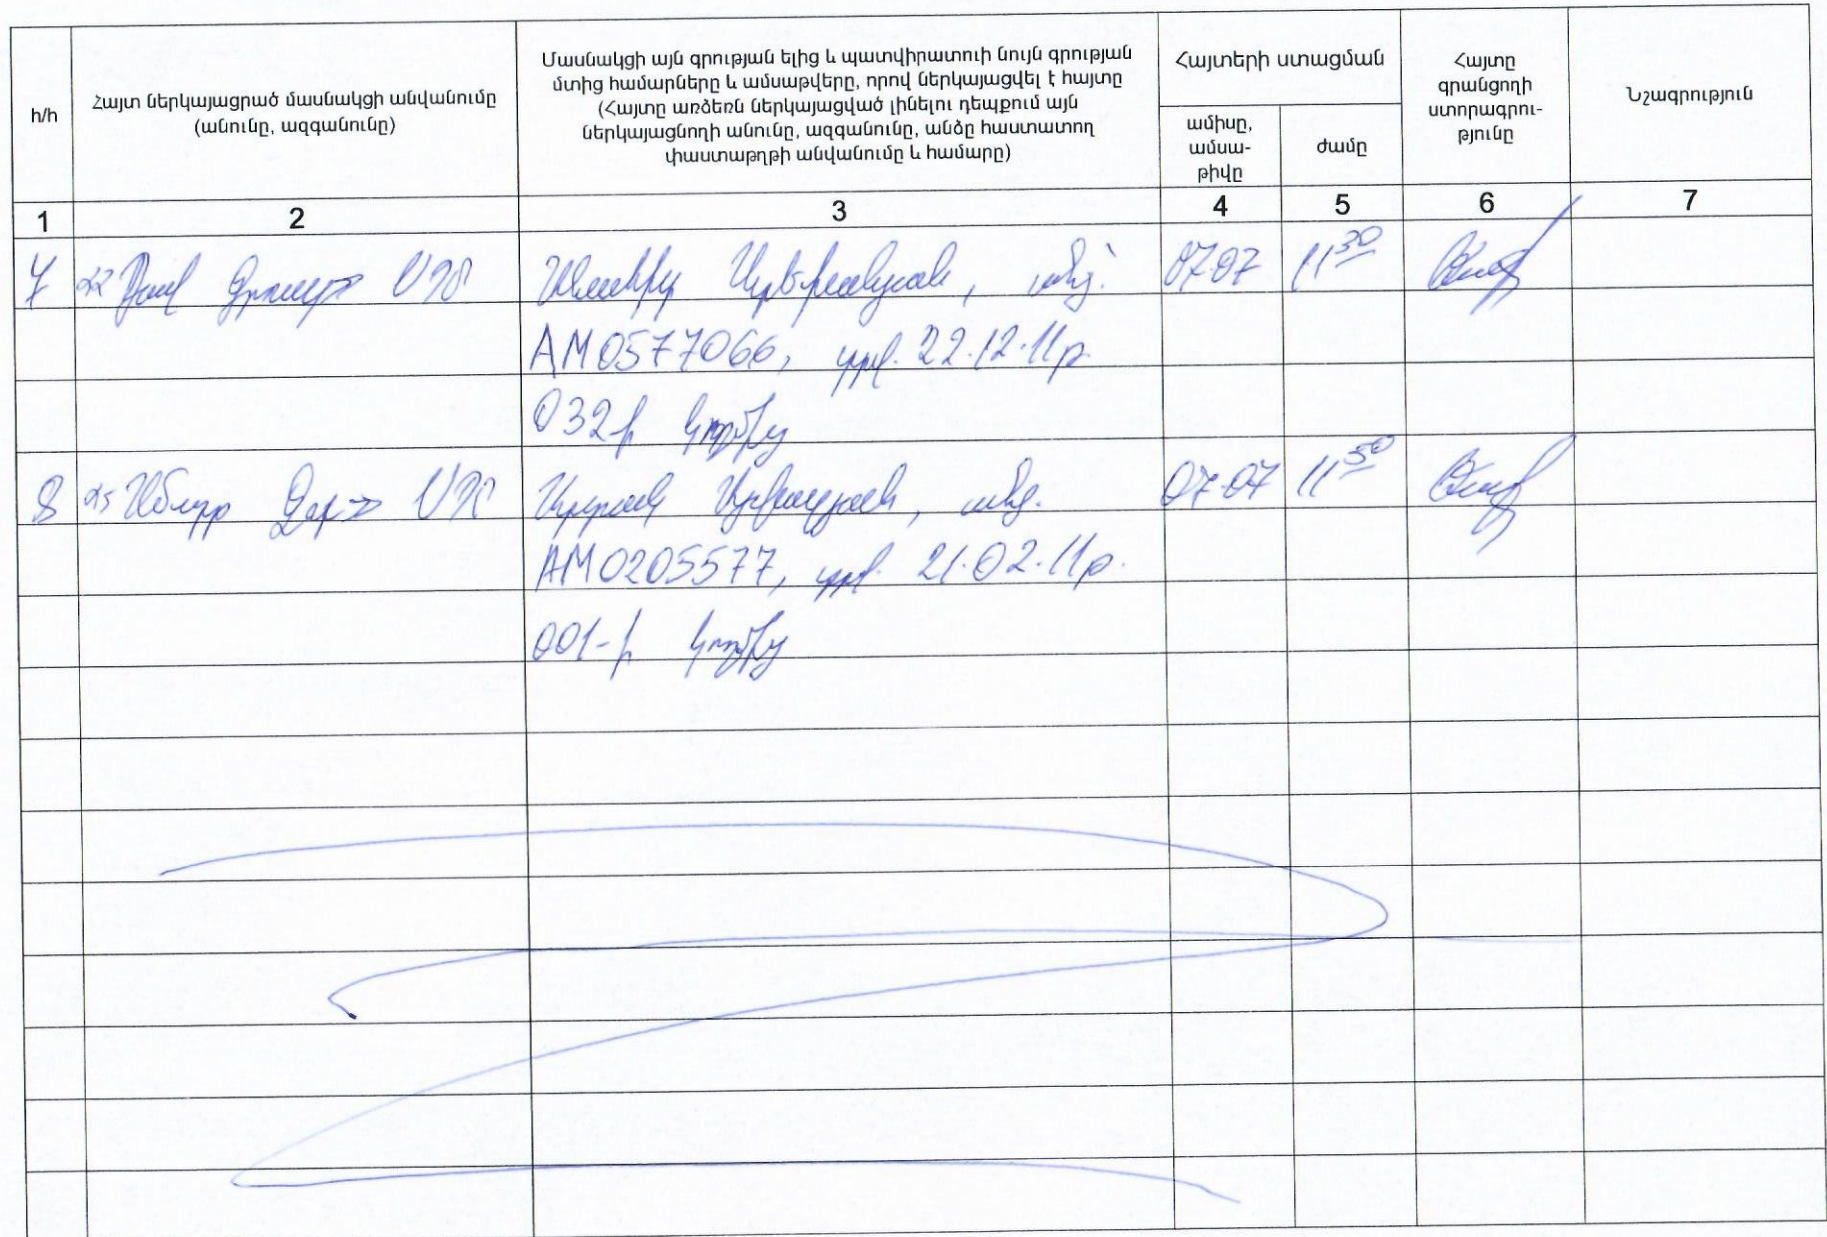 հ/հ
Հայտ ներկայացրած մասնակցի անվանումը
(անունը, ազգանունը)
Մասնակցի այն գրության ելից և պատվիրատուի նույն գրության
մտից համարները և ամսաթվերը, որով ներկայացվել է հայտը
(Հայտը առձեռն ներկայացված լինելու դեպքում այն
ներկայացնողի անունը, ազգանունը, անձը հաստատող
փաստաթղթի անվանումը և համարը)
Հայտերի ստացման
ամիսը,
ամսա-
թիվը
ժամը
Հայտը
գրանցողի
ստորագրու-
թյունը
Նշագրություն
1 2 3 4 5 6 7
7 ՍՊԸ անձ. 07.07 11 30
AM0577066, տրվ. 22.12.11թ.
032-ի կողմից
8 ՍՊԸ անձ. 07.07 11 50
AM0205577, տրվ. 21.02.11թ.
001-ի կողմից